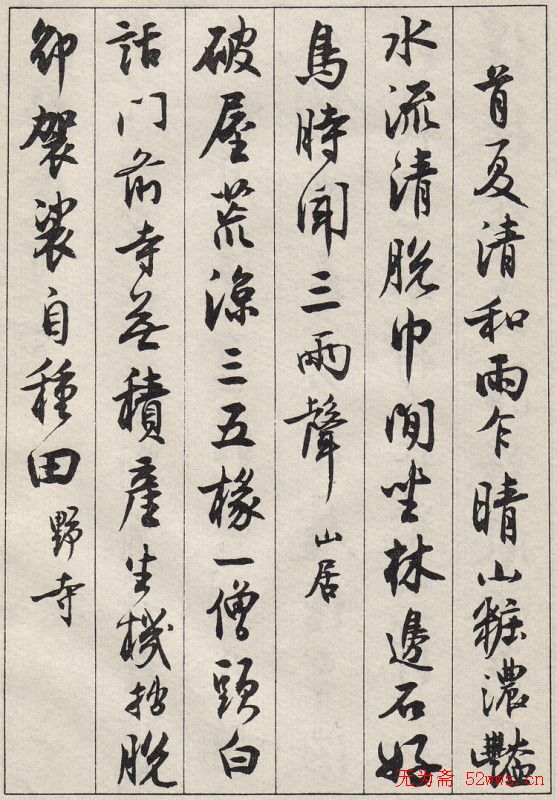 首夏清和雨乍晴山粧濃豔
水流清脫巾閒坐林邊石好
鳥時聞三兩聲 山居
破屋荒涼三五椽一僧頭白
話门前寺無積產生機拙脫
卻袈裟自種田 野寺
无为斋 52wws.cn